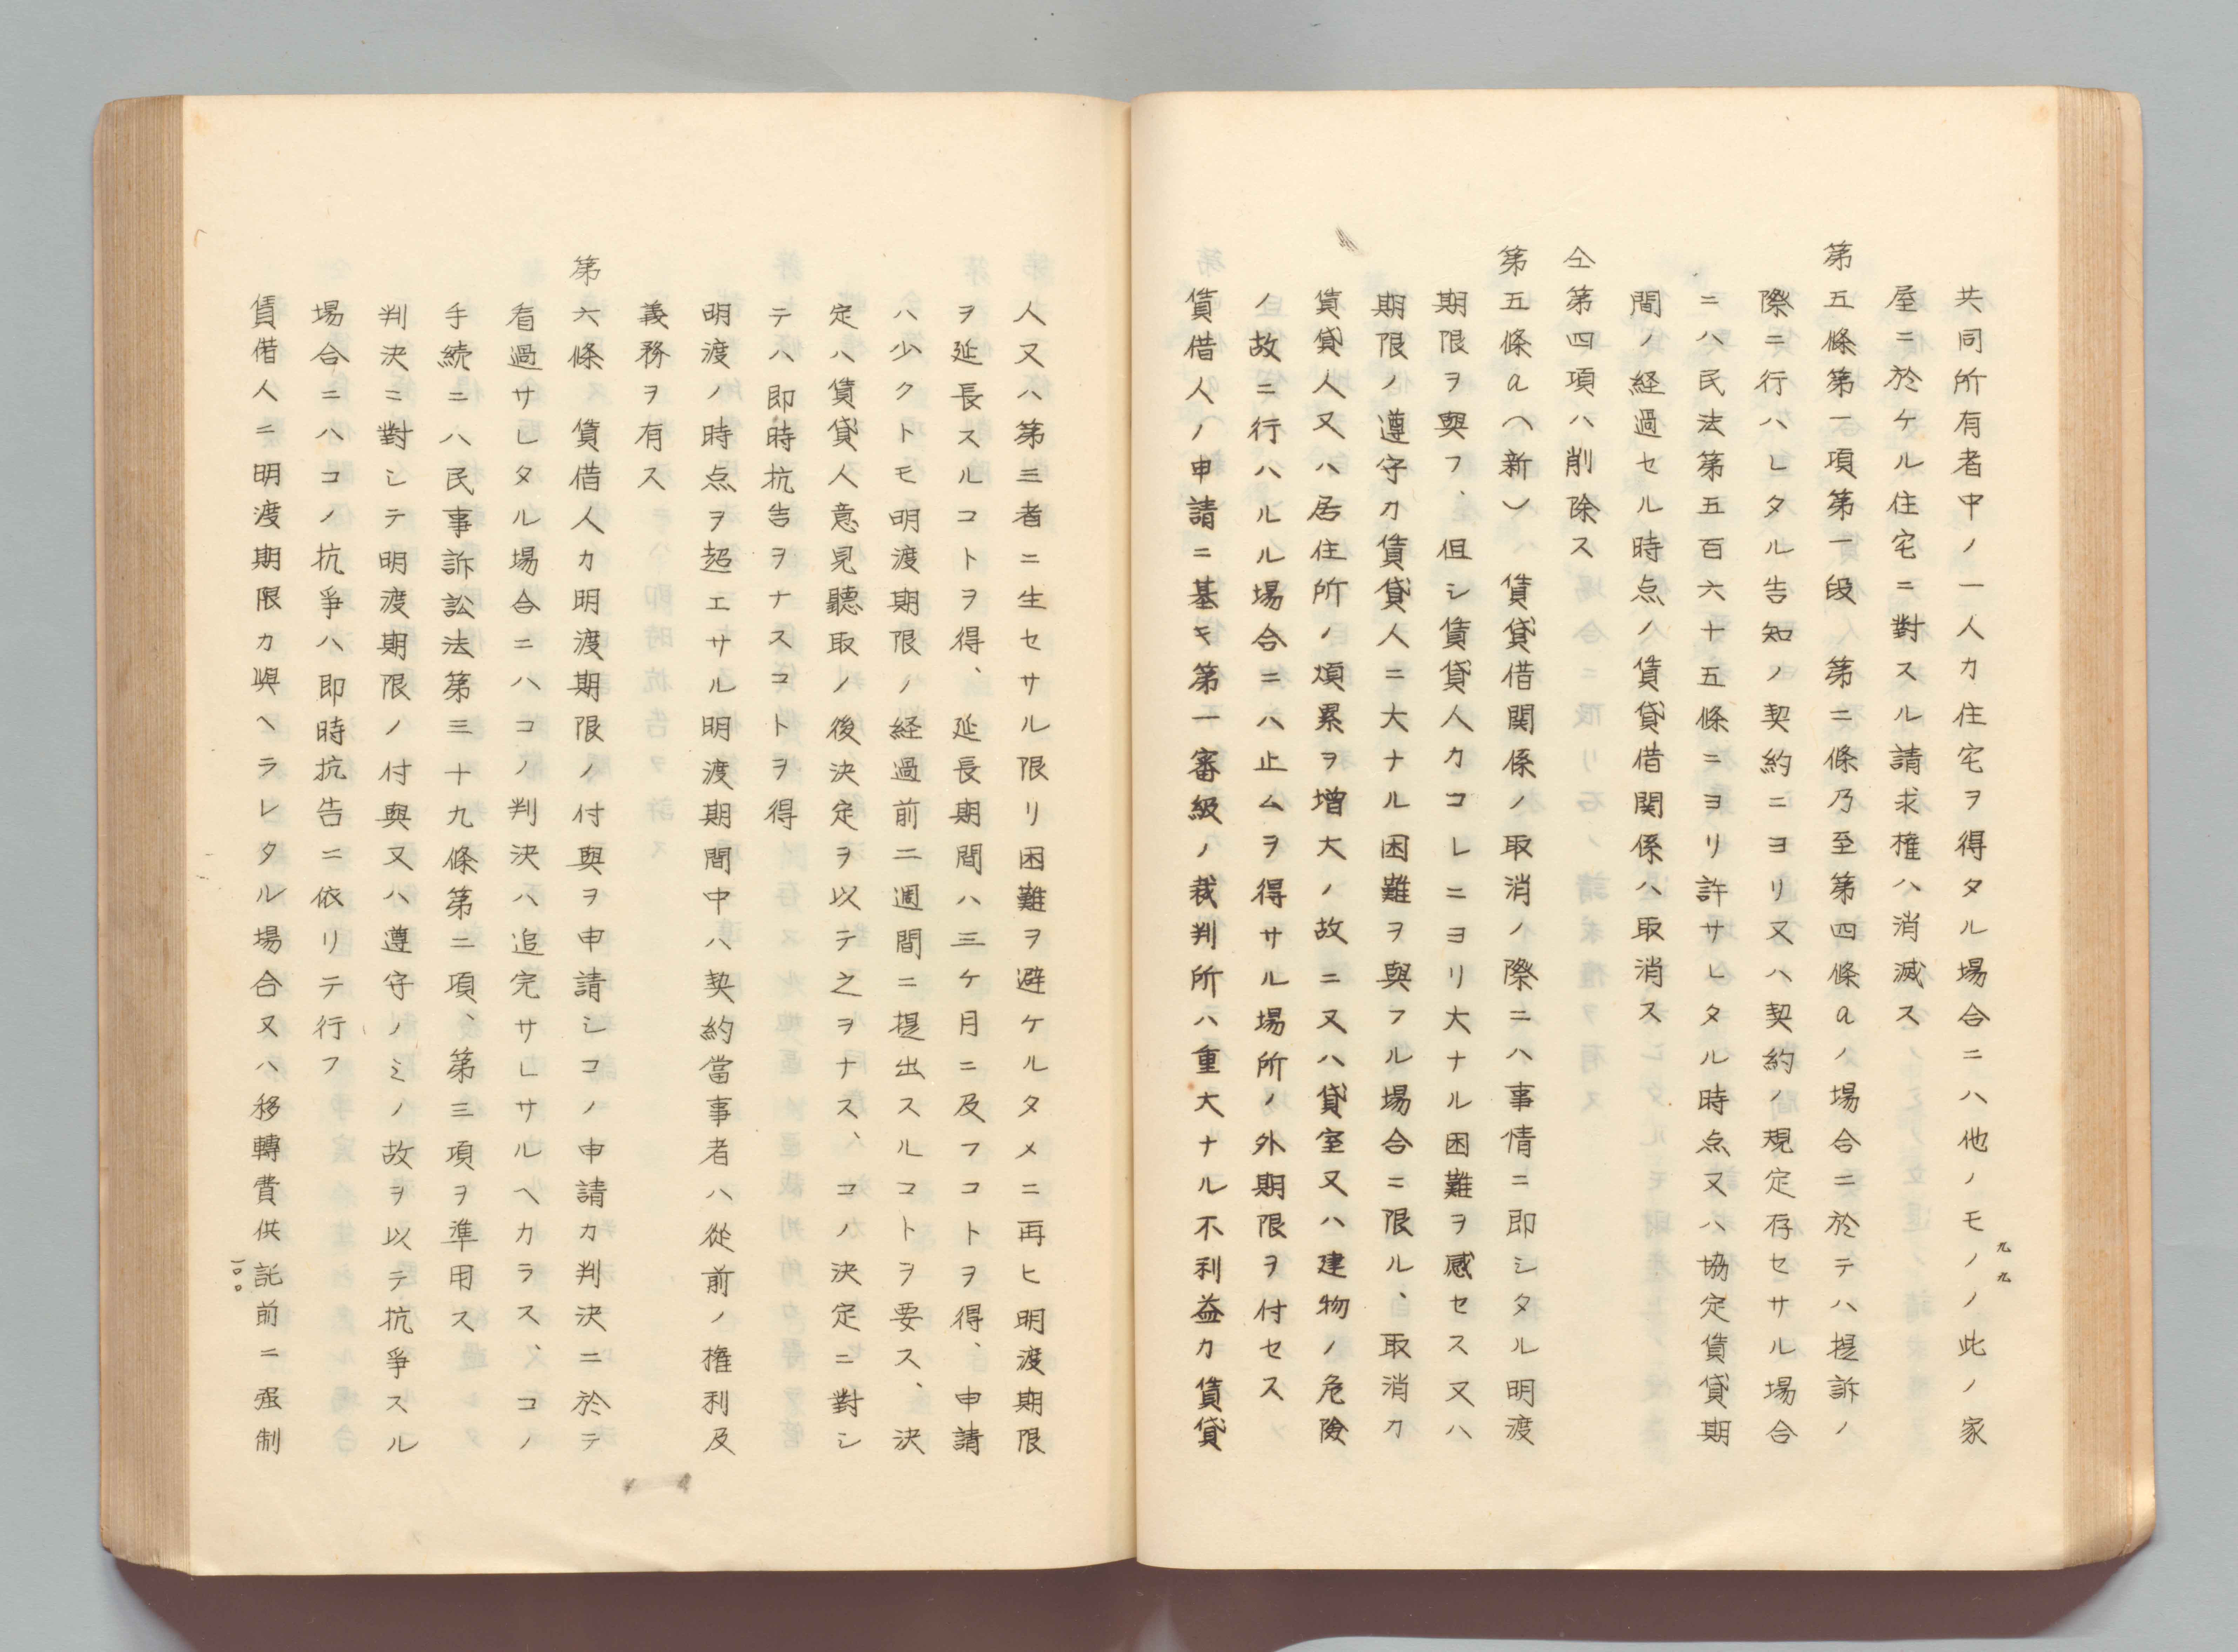 共同所有者中ノ一人カ住宅ヲ得タル場合ニハ他ノモノノ此ノ家
屋ニ於ケル住宅ニ對スル請求權ハ消滅ス
第五條第一項第一段、第二條乃至第四條aノ場合ニ於テハ提訴ノ
際ニ行ハレタル告知ノ契約ニヨリ又ハ契約ノ規定存セサル場合
ニハ民法第五百六十五條ニヨリ許サレタル時点又ハ協定賃貸期
間ノ経過セル時点ノ賃貸借関係ハ取消ス
仝第四項ハ削除ス
第五條a(新)ハ賃貸借関係ノ取消ノ際ニハ事情ニ即シタル明渡
期限ヲ與フ、但シ賃貸人カコレニヨリ大ナル困難ヲ感セス又ハ
期限ノ遵守カ賃貸人ニ大ナル困難ヲ與フル場合ニ限ル、取消カ
賃貸人又ハ居住所ノ煩累ヲ增大ノ故ニ又ハ貸室又ハ建物ノ危險
ノ故ニ行ハルル場合ニハ止ムヲ得サル場所ノ外期限ヲ付セス
賃借人ノ申請ニ基キ第一審級ノ裁判所ハ重大ナル不利益カ賃貸
九九
人又ハ第三者ニ生セサル限リ困難ヲ避ケルタメニ再ヒ明渡期限
ヲ延長スルコトヲ得、延長期間ハ三ケ月ニ及フコトヲ得、申請
ハ少クトモ明渡期限ノ経過前二週間ニ提出スルコトヲ要ス、決
定ハ賃貸人意見聽取ノ後決定ヲ以テ之ヲナス、コノ決定ニ對シ
テハ即時抗告ヲナスコトヲ得
明渡ノ時点ヲ超エサル明渡期間中ハ契約當事者ハ從前ノ權利及
義務ヲ有ス
第六條 賃借人カ明渡期限ノ付與ヲ申請シコノ申請カ判決ニ於テ
看過サレタル場合ニハコノ判決ハ追完サレサルヘカラス、コノ
手続ニハ民事訴訟法第三十九條第二項、第三項ヲ準用ス
判決ニ對シテ明渡期限ノ付與又ハ遵守ノミノ故ヲ以テ抗爭スル
場合ニハコノ抗爭ハ即時抗告ニ依リテ行フ
賃借人ニ明渡期限カ與ヘラレタル場合又ハ移轉費供託前ニ强制
一〇〇